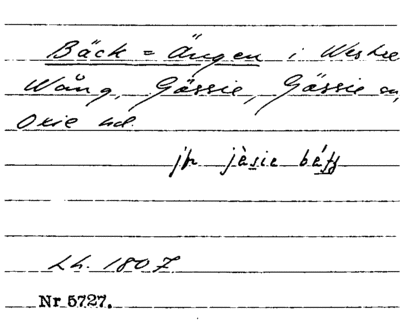 Bäck = Ängen i Westre
Wång, Gässie, Gässie sn,
Oxie hd.
jfr jàsie
Lh. 1807
Nr 5727.